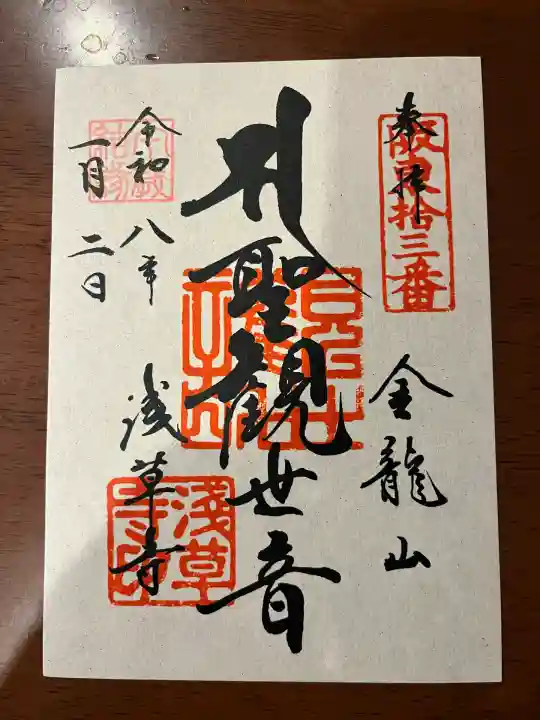 奉拝
坂東拾三番
金龍山
聖観世音
浅草寺
淺草寺印
令和八年
一月二日